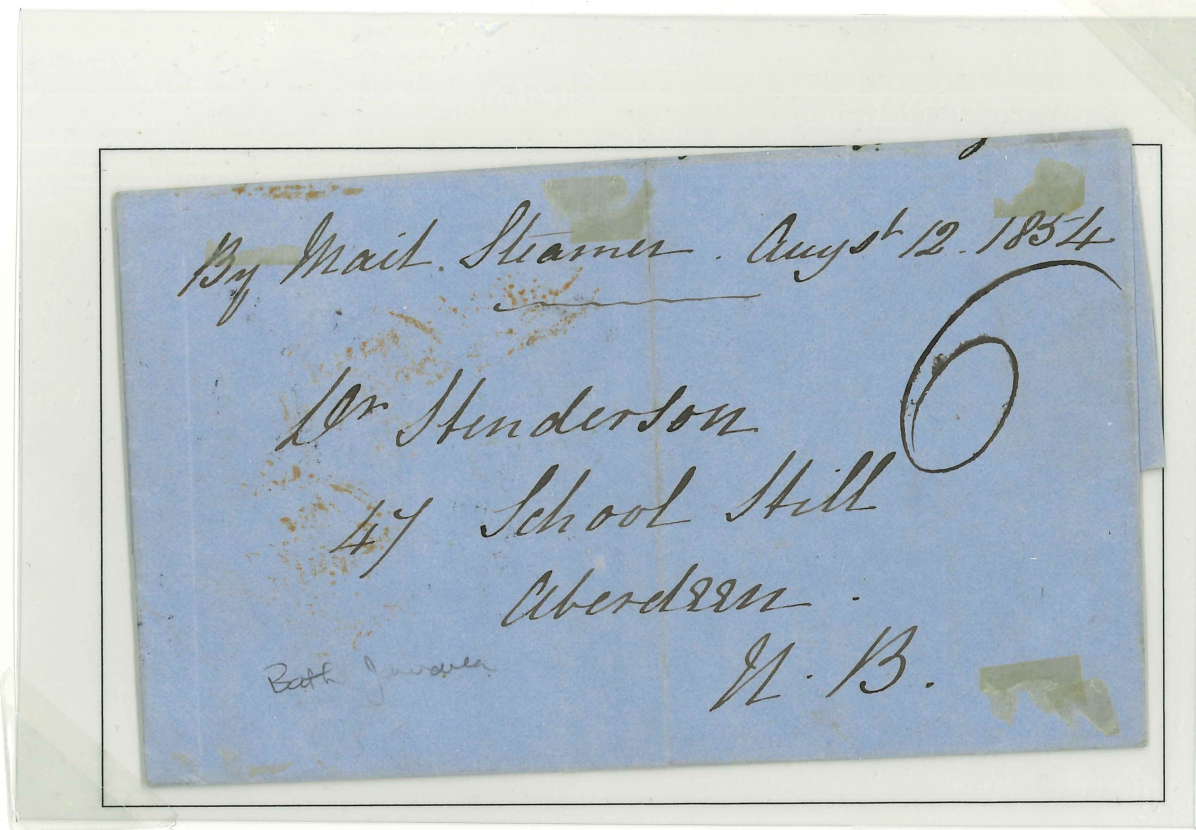 By Mail Steamer. Augst 12. 1854
6
Dr Henderson
47 School Hill
Aberdeen.
N. B.
Bath Jamaica